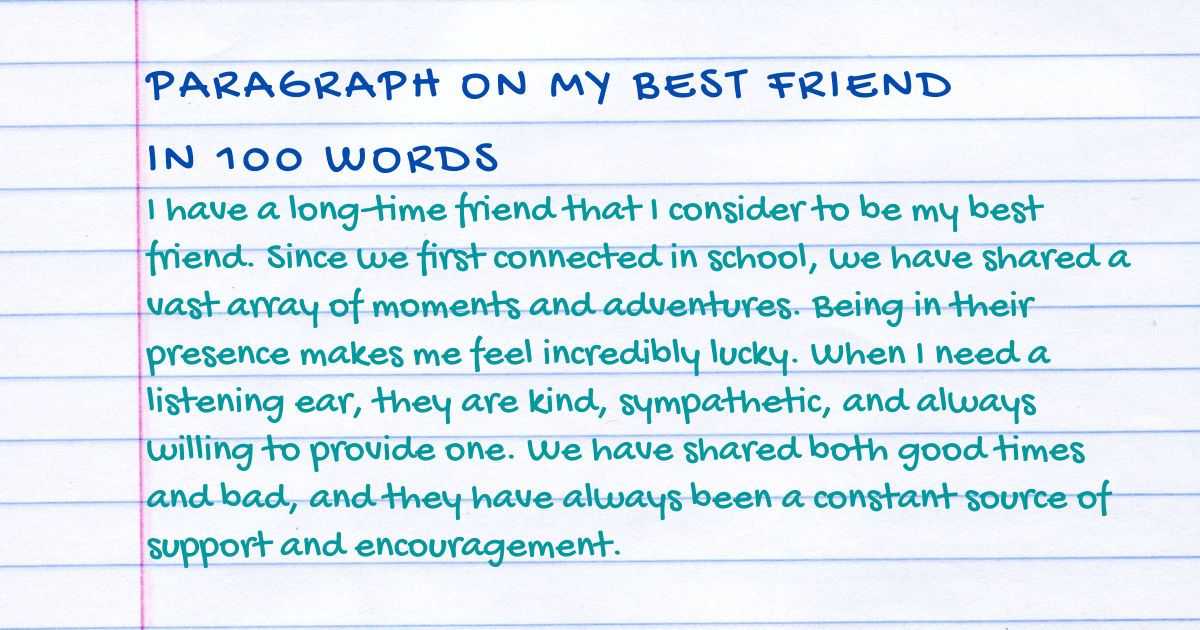 PARAGRAPH ON MY BEST FRIEND
IN 100 WORDS
I have a long-time friend that I consider to be my best
friend. Since we first connected in school, we have shared a
vast array of moments and adventures. Being in their
presence makes me feel incredibly lucky. When I need a
listening ear, they are kind, sympathetic, and always
willing to provide one. We have shared both good times
and bad, and they have always been a constant source of
support and encouragement.